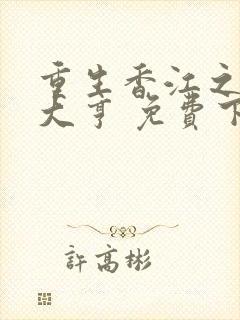 重生香江之
大亨 免費下
許高彬